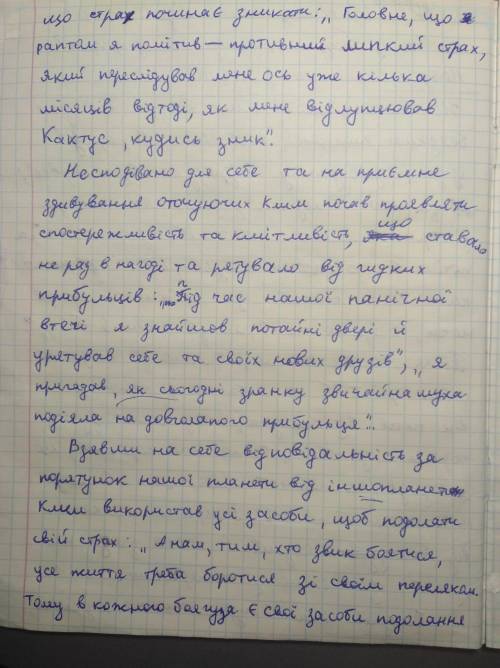 що страх починає зникати: „Головне, що я
раптом я помітив — противний липкий страх,
який переслідував мене ось уже кілька
місяців відтоді, як мене відлупцював
Кактус, кудись зник".
Несподівано для себе та на приємне
здивування оточуючих Клим почав проявляти
спостережливість та кмітливість, що ставало
не раз в нагоді та рятувало від гидких
прибульців: „...під час нашої панічної
втечі я знайшов потайні двері й
урятував себе та своїх нових друзів", „я
пригадав, як сьогодні зранку звичайна муха
подіяла на довголапого прибульця".
Взявши на себе відповідальність за
порятунок нашої планети від іншопланетян
Клим використав усі засоби, щоб подолати
свій страх: „А нам, тим, хто звик боятися,
усе життя треба боротися зі своїм переляком.
Тому в кожного боягуза є свої засоби подолання